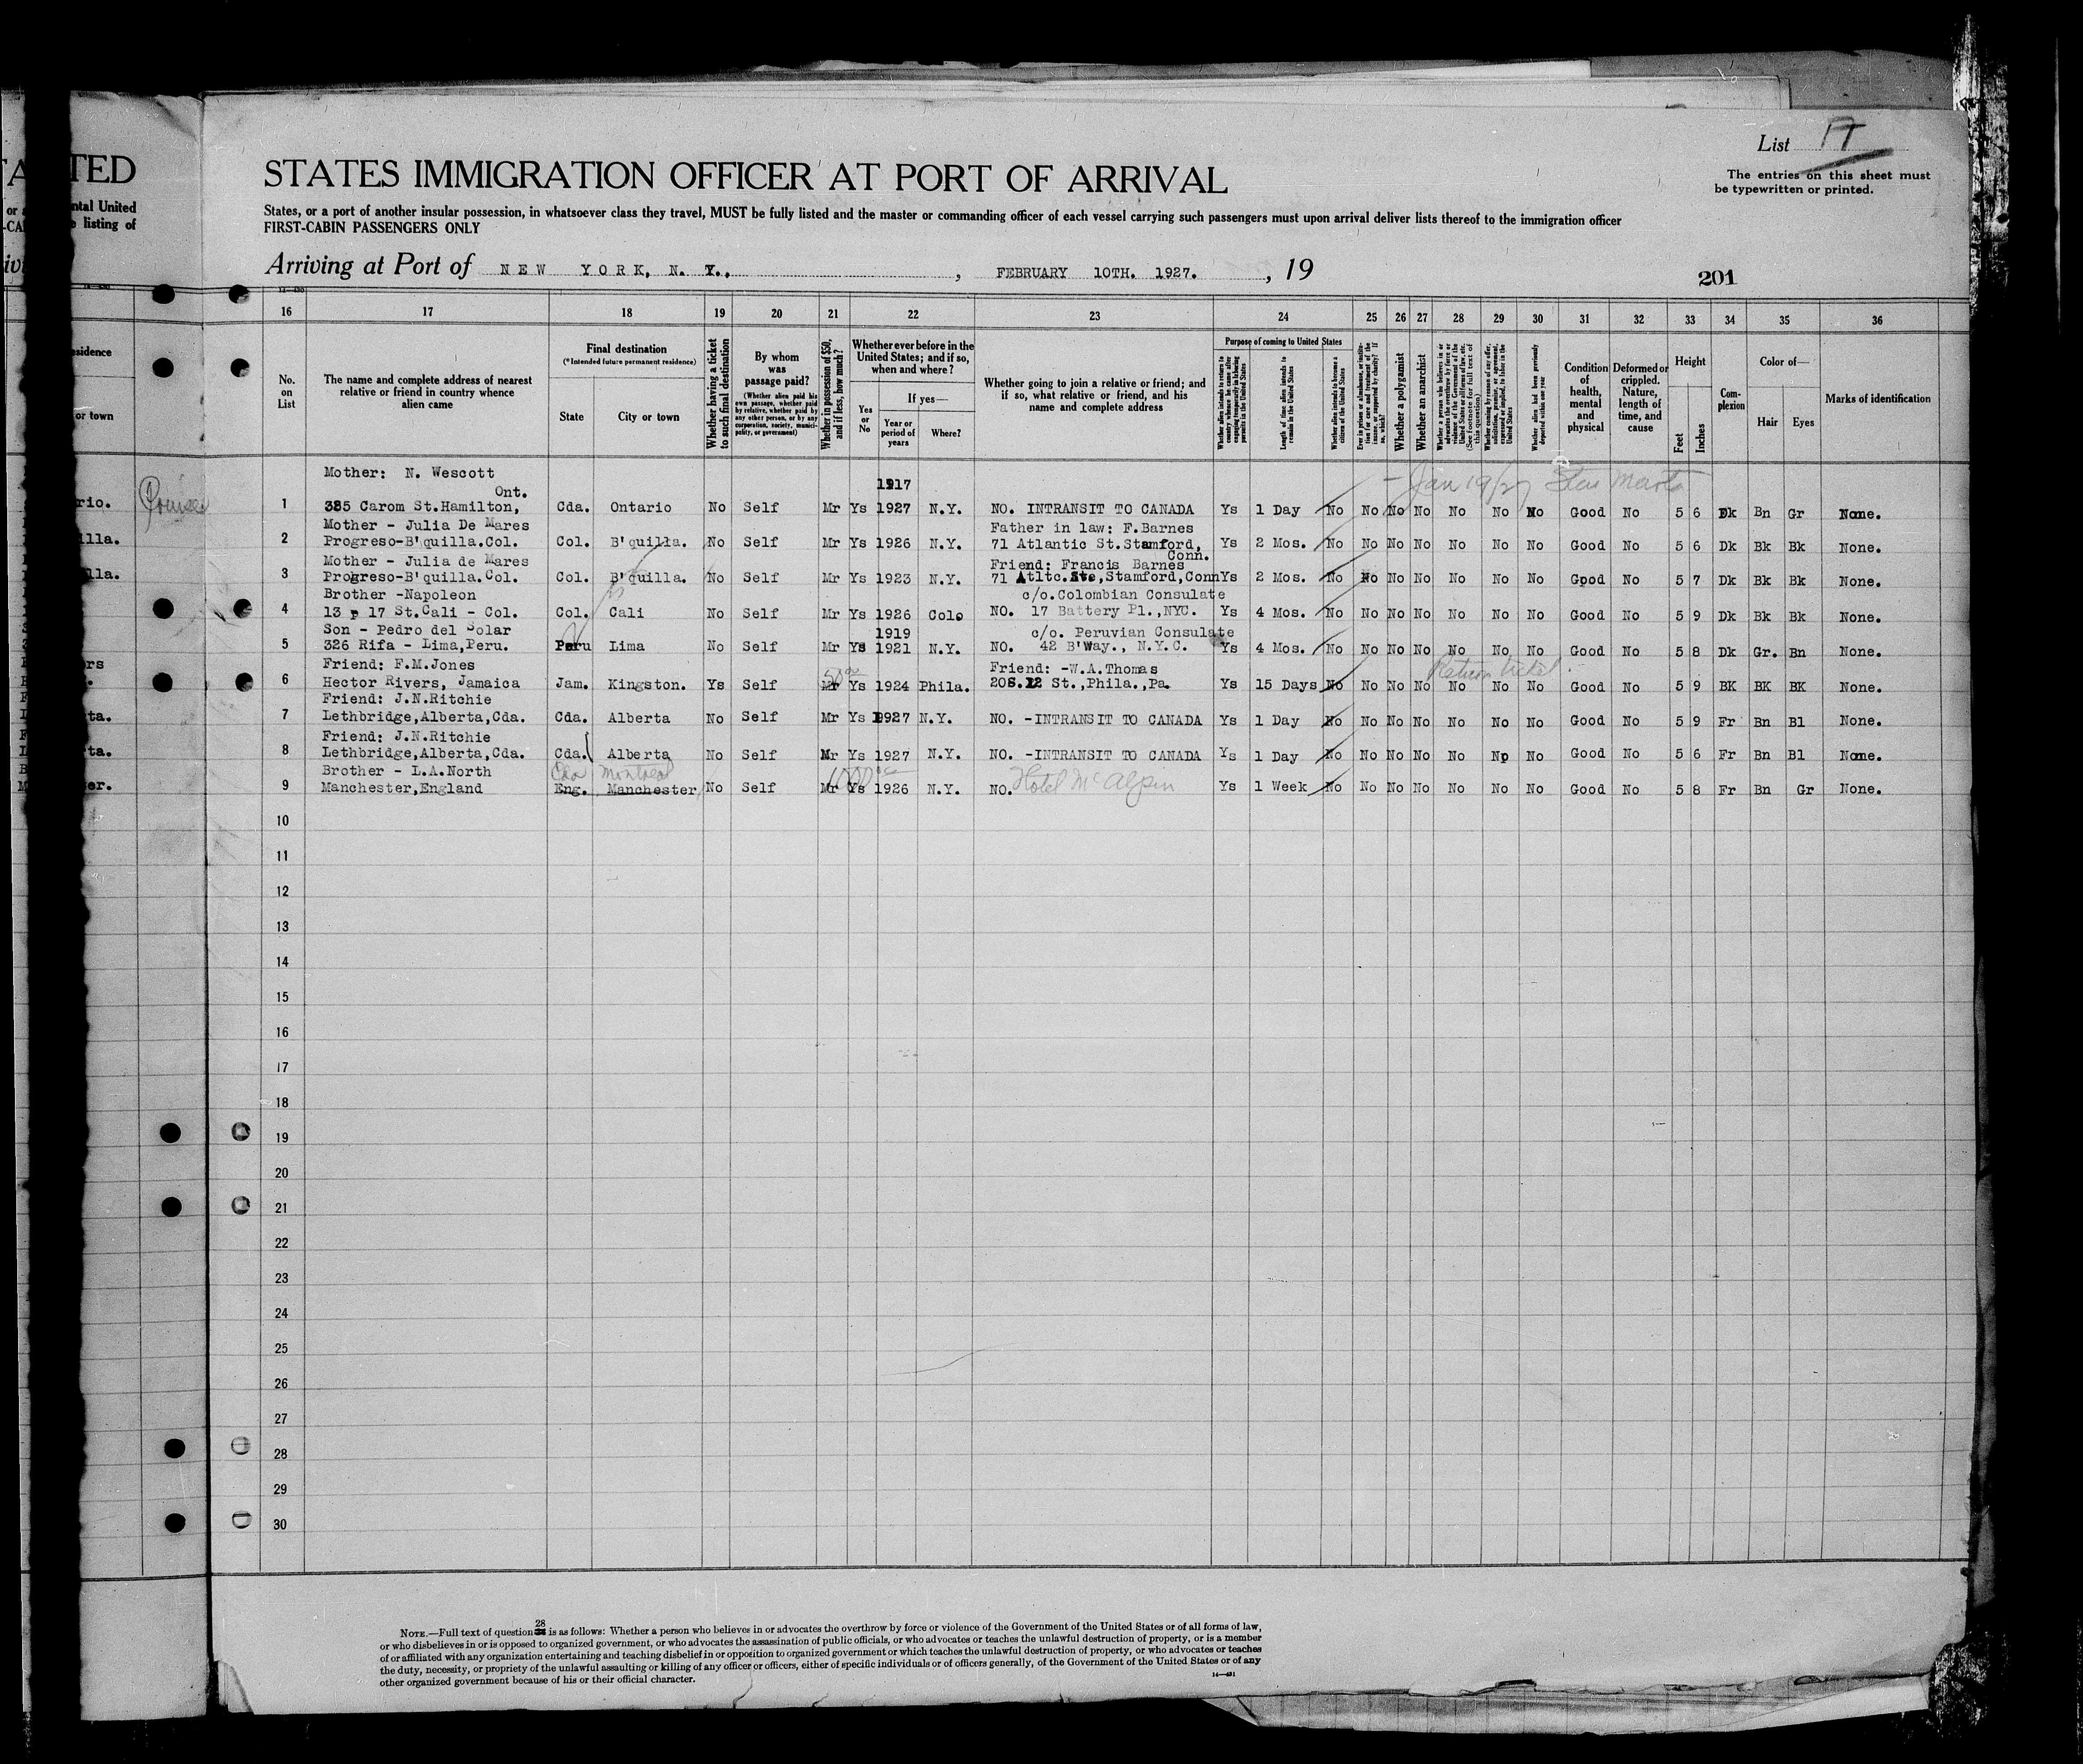 List 17
STATES IMMIGRATION OFFICER AT PORT OF ARRIVAL
The entries on this sheet must
be typewritten or printed.
States, or a port of another insular possession, in whatsoever class they travel, MUST be fully listed and the master or commanding officer of each vessel carrying such passengers must upon arrival deliver lists thereof to the immigration officer
FIRST-CABIN PASSENGERS ONLY
Arriving at Port of NEW YORK, N. Y., , FEBRUARY 10TH. 1927. , 19
201
16 17 18 19 20 21 22 23 24 25 26 27 28 29 30 31 32 33 34 35 36
No. on List
The name and complete address of nearest relative or friend in country whence alien came
Final destination (*Intended future permanent residence)
State
City or town
Whether having a ticket to such final destination
By whom was passage paid? (Whether alien paid his own passage, whether paid by relative, whether paid by any other person, or by any corporation, society, municipality, or government)
Whether in possession of $50, and if less, how much?
Whether ever before in the United States; and if so, when and where?
Yes or No
If yes—
Year or period of years
Where?
Whether going to join a relative or friend; and if so, what relative or friend, and his name and complete address
Purpose of coming to United States
Whether alien intends to return to country whence he came after engaging temporarily in laboring pursuits in the United States
Length of time alien intends to remain in the United States
Whether alien intends to become a citizen of the United States
Ever in prison or almshouse, or institution for care and treatment of the insane, or supported by charity? If so, which?
Whether a polygamist
Whether an anarchist
Whether a person who believes in or advocates the overthrow by force or violence of the Government of the United States or all forms of law, etc. (See footnote for full text of this question)
Whether coming by reason of any offer, solicitation, promise, or agreement, expressed or implied, to labor in the United States
Whether alien had been previously deported within one year
Condition of health, mental and physical
Deformed or crippled. Nature, length of time, and cause
Height
Feet
Inches
Complexion
Color of—
Hair
Eyes
Marks of identification
Mother: N. Wescott
1917
- Jan 19/27
Ont.
1 385 Carom St.Hamilton, Cda. Ontario No Self Mr Ys 1927 N.Y. NO. INTRANSIT TO CANADA Ys 1 Day No No No No No No No Good No 5 6 Dk Bn Gr None.
Mother - Julia De Mares Father in law: F.Barnes
2 Progreso-B'quilla.Col. Col. B'quilla. No Self Mr Ys 1926 N.Y. 71 Atlantic St.Stamford, Ys 2 Mos. No No No No No No No Good No 5 6 Dk Bk Bk None.
Conn.
Mother - Julia de Mares Friend: Francis Barnes
3 Progreso-B'quilla.Col. Col. B'quilla. No Self Mr Ys 1923 N.Y. 71 Atltc.Ste,Stamford,Conn Ys 2 Mos. No No No No No No No Good No 5 7 Dk Bk Bk None.
Brother -Napoleon c/o.Colombian Consulate
4 13 p 17 St.Cali - Col. Col. Cali No Self Mr Ys 1926 Colo NO. 17 Battery Pl.,NYC. Ys 4 Mos. No No No No No No No Good No 5 9 Dk Bk Bk None.
Son - Pedro del Solar 1919 c/o. Peruvian Consulate
5 326 Rifa - Lima,Peru. Peru Lima No Self Mr Ys 1921 N.Y. NO. 42 B'Way., N.Y.C. Ys 4 Mos. No No No No No No No Good No 5 8 Dk Gr. Bn None.
Friend: F.M.Jones Friend: -W.A.Thomas Return ticket
6 Hector Rivers, Jamaica Jam. Kingston. Ys Self Mr Ys 1924 Phila. 20S.12 St.,Phila.,Pa. Ys 15 Days No No No No No No No Good No 5 9 BK BK BK None.
Friend: J.N.Ritchie
7 Lethbridge,Alberta,Cda. Cda. Alberta No Self Mr Ys 1927 N.Y. NO. -INTRANSIT TO CANADA Ys 1 Day No No No No No No No Good No 5 9 Fr Bn Bl None.
Friend: J.N.Ritchie
8 Lethbridge,Alberta,Cda. Cda. Alberta No Self Mr Ys 1927 N.Y. NO. -INTRANSIT TO CANADA Ys 1 Day No No No No No No No Good No 5 6 Fr Bn Bl None.
Brother - L.A.North Cda Montreal Hotel McAlpin
9 Manchester,England Eng. Manchester No Self Mr Ys 1926 N.Y. NO. Ys 1 Week No No No No No No No Good No 5 8 Fr Bn Gr None.
10
11
12
13
14
15
16
17
18
19
20
21
22
23
24
25
26
27
28
29
30
NOTE.—Full text of question 28 is as follows: Whether a person who believes in or advocates the overthrow by force or violence of the Government of the United States or of all forms of law,
or who disbelieves in or is opposed to organized government, or who advocates the assassination of public officials, or who advocates or teaches the unlawful destruction of property, or is a member
of or affiliated with any organization entertaining and teaching disbelief in or opposition to organized government or which teaches the unlawful destruction of property, or who advocates or teaches
the duty, necessity, or propriety of the unlawful assaulting or killing of any officer or officers, either of specific individuals or of officers generally, of the Government of the United States or of any
other organized government because of his or their official character.
14—431